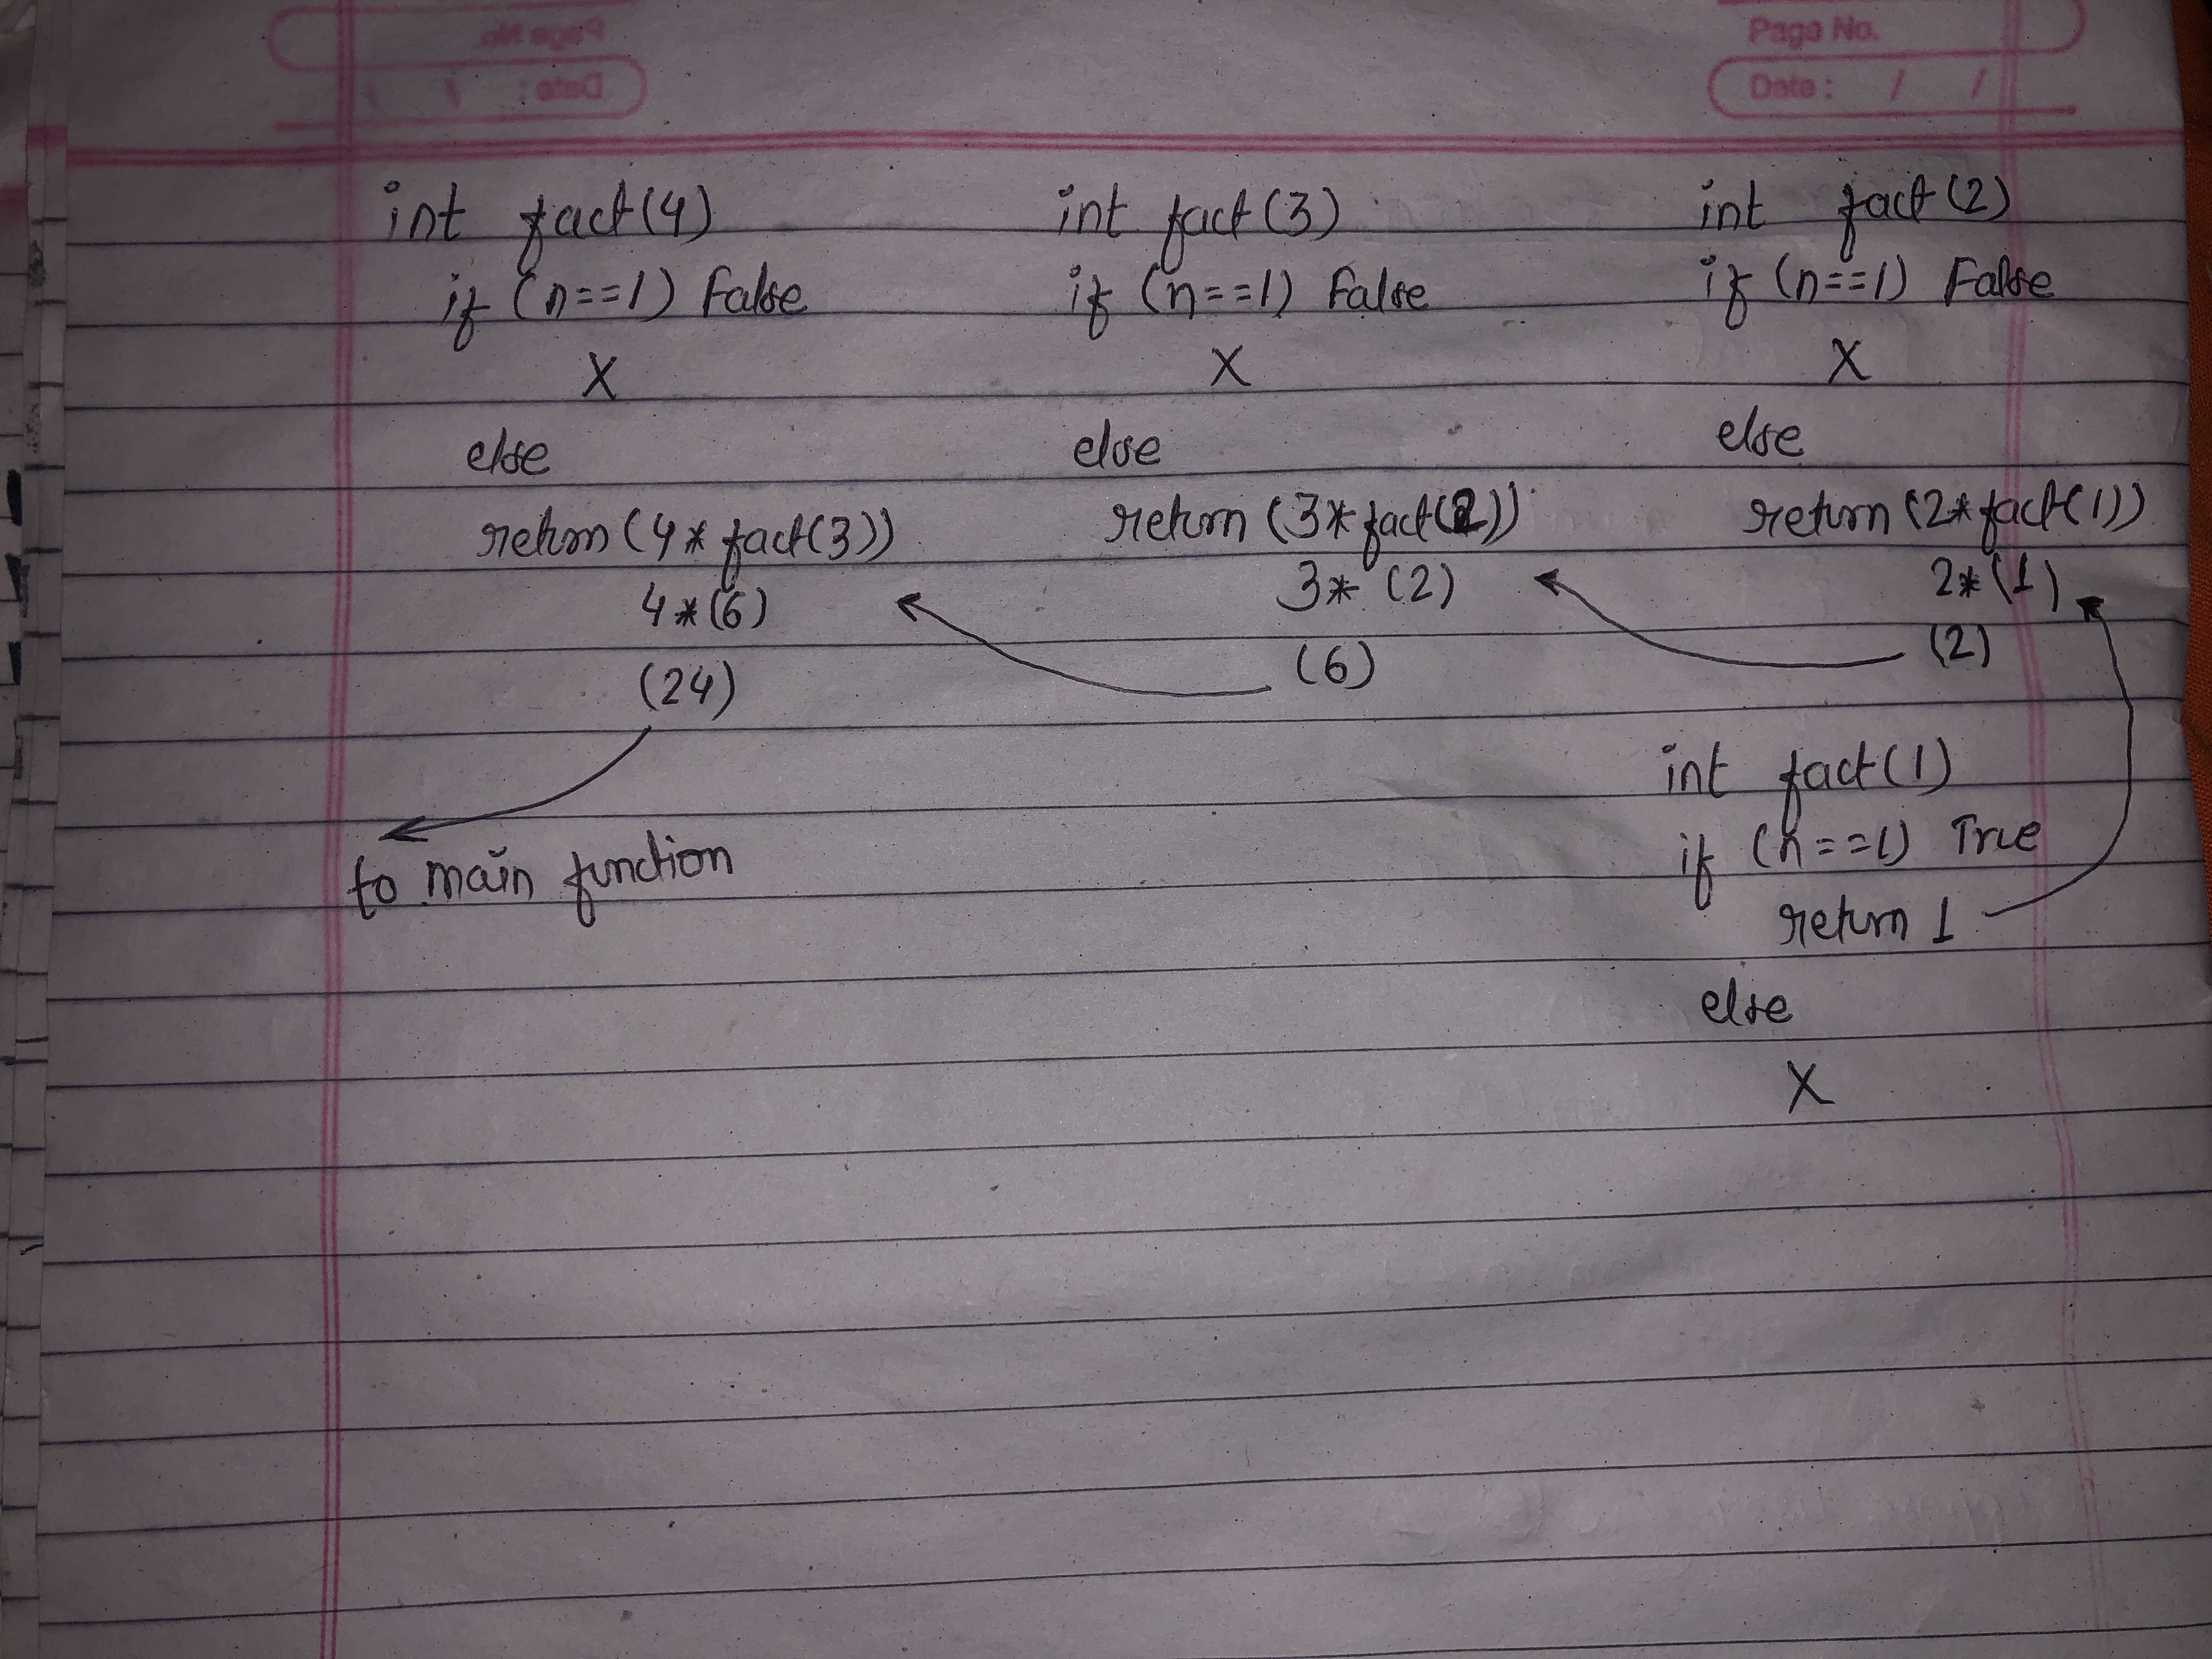 Page No.
Date : / /
Page No.
Date : / /
int fact(4)
if (n==1) False
X
else
return (4* fact(3))
4*(6)
(24)
to main function
int fact(3)
if (n==1) False
X
else
return (3* fact(2))
3* (2)
(6)
int fact(2)
if (n==1) False
X
else
return (2* fact(1))
2*(1)
(2)
int fact(1)
if (n==1) True
return 1
else
X